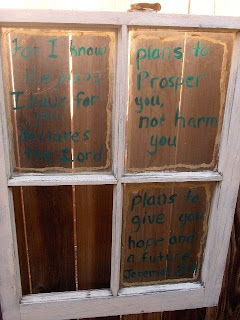 For I know
the plans
I have for
you
Declares
the Lord
plans to
Prosper
you,
not harm
you
plans to
give you
hope and
a future
Jeremiah